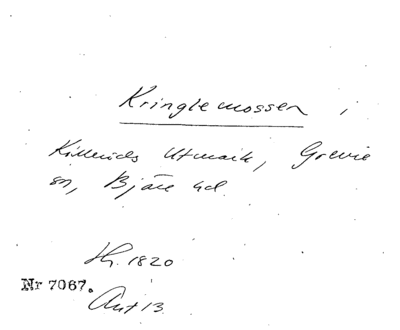 Kringlemossen,
Killeröds Utmark, Grevie
sn, Bjäre hd.
Sk. 1820
Nr 7067.
Ant 13.